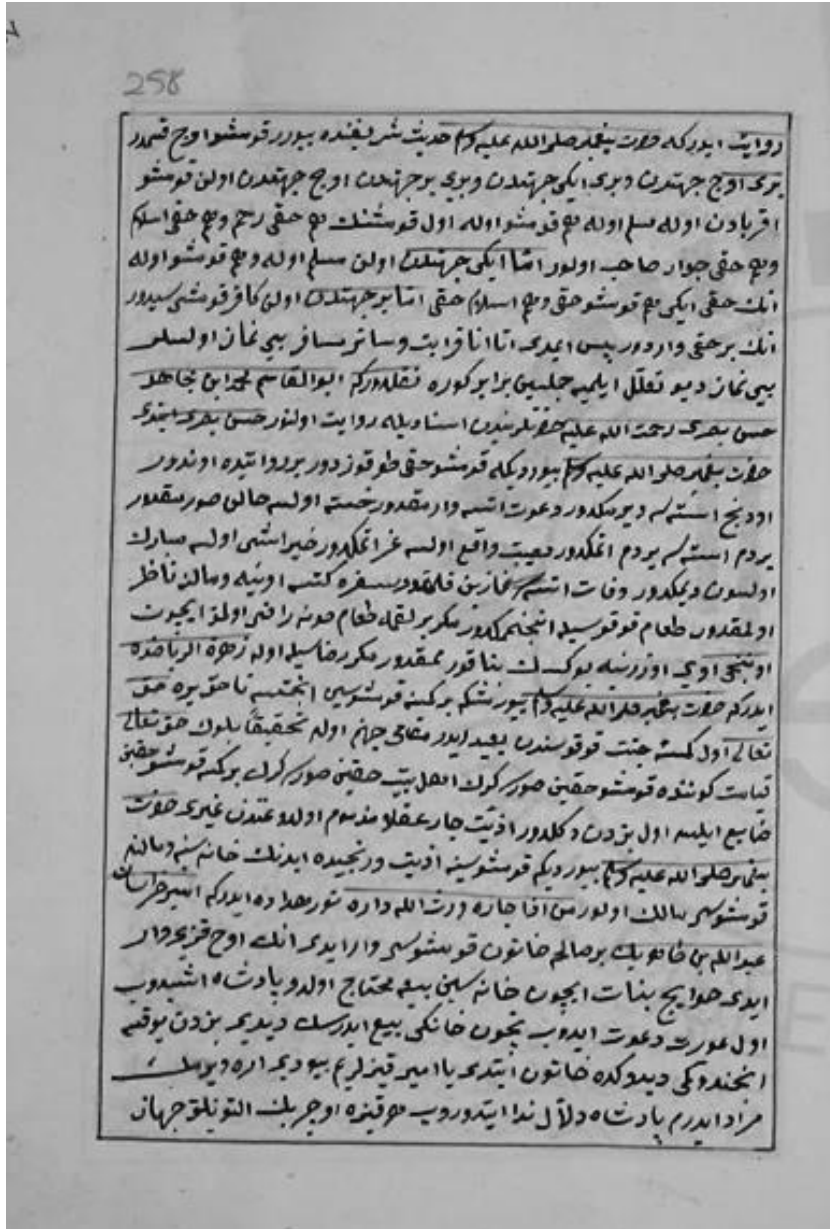 258
روایت ایدر که حضرت پیغمبر صلی الله علیه وسلم حدیث شریفنده بیورر قومشو اوچ قسمدر
بری اوچ جهتدن وبری ایکی جهتدن وبری بر جهتدن اوچ جهتدن اولن قومشو
اقربادن اوله مسلم اوله هم قومشو اوله اول قومشنک هم حقی رحم وهم حقی اسلام
وهم حقی جوار صاحب اولور اما ایکی جهتدن اولن مسلم اوله وهم قومشو اوله
انک حقی ایکی هم قومشو حقی وهم اسلام حقی اما بر جهتدن اولن کافر قومشی سیدور
انک بر حقی واردور پس ایمدی اتا انا قرابت وسائر مسافر بی نماز اولسلر
بی نماز دیو تعلل ایلمیه جملسین برابر کوره نقلدورکه ابو القاسم محمد ابن مجاهد
حسن بصری رحمت الله علیه حضرتلریندن اسنادیله روایت اولنور حسن بصری ایتدی
حضرت پیغمبر صلی الله علیه وسلم بیوردیکه قومشو حقی طوقوزدور بر روایتده اوندور
اودنج استسه ویرمکدور دعوت اتسه وارمقدور خسته اولسه حالن صورمقدور
یردم استسه یردم اتمکدور مصیبت واقع اولسه عزا اتمکدور خیر ایشی اولسه مبارک
اولسون دیمکدور وفات اتسه نمازین قلمقدور سفره کتسه اوینه ومالنه ناظر
اولمقدور طعام قوقوسیله انجتمامکدور مکر بر لقمه طعام صونه راضی اولمق ایچون
اوننجی اوی اوزرینه یوکسک بنا قورمامقدور مکر رضاسیله اوله زهرة الریاضده
ایدر که حضرت پیغمبر صلی الله علیه وسلم بیورمشکه بر کمسه قومشوسین انجتسه ناحق یره حق
تعالی اول کمسه جنت قوقوسندن بعید ایدر مقامی جهنم اوله تحقیقا بیلوک حق تعالی
قیامت کوننده قومشو حقین صورر کوک اهل بیت حقین صورر کرک بر کمسه قومشو حقین
ضایع ایلسه اول بزدن دکلدور اذیت جار عقلا مذموم اولدوغندن غیری حضرت
پیغمبر صلی الله علیه وسلم بیوردیکه قومشوسینه اذیت ورنجیده ایدنک خانه سنه ومالنه
قومشوسی مالک اولور من اذا جاره ورث الله داره ده ایدر که امیر خراسان
عبدالله بن طاهرک بر صالحه خاتون قومشوسی وار ایدی انک اوچ قزی وار
ایدی حوایج بنات ایچون خانه سین بیعه محتاج اولدو پادشاه اشیدوب
اول عورت دعوت ایدوب نچون خانکی بیع ایدرسک دیدی بزدن یوقسه
انجندوکی دیدوکده خاتون ایتدی یا امیر قیزلریم بیودی اره ویرمک
مراد ایدرم پادشاه دلال ندا ایتدوروب هر قیزه اوچر بک التونلق جهاز